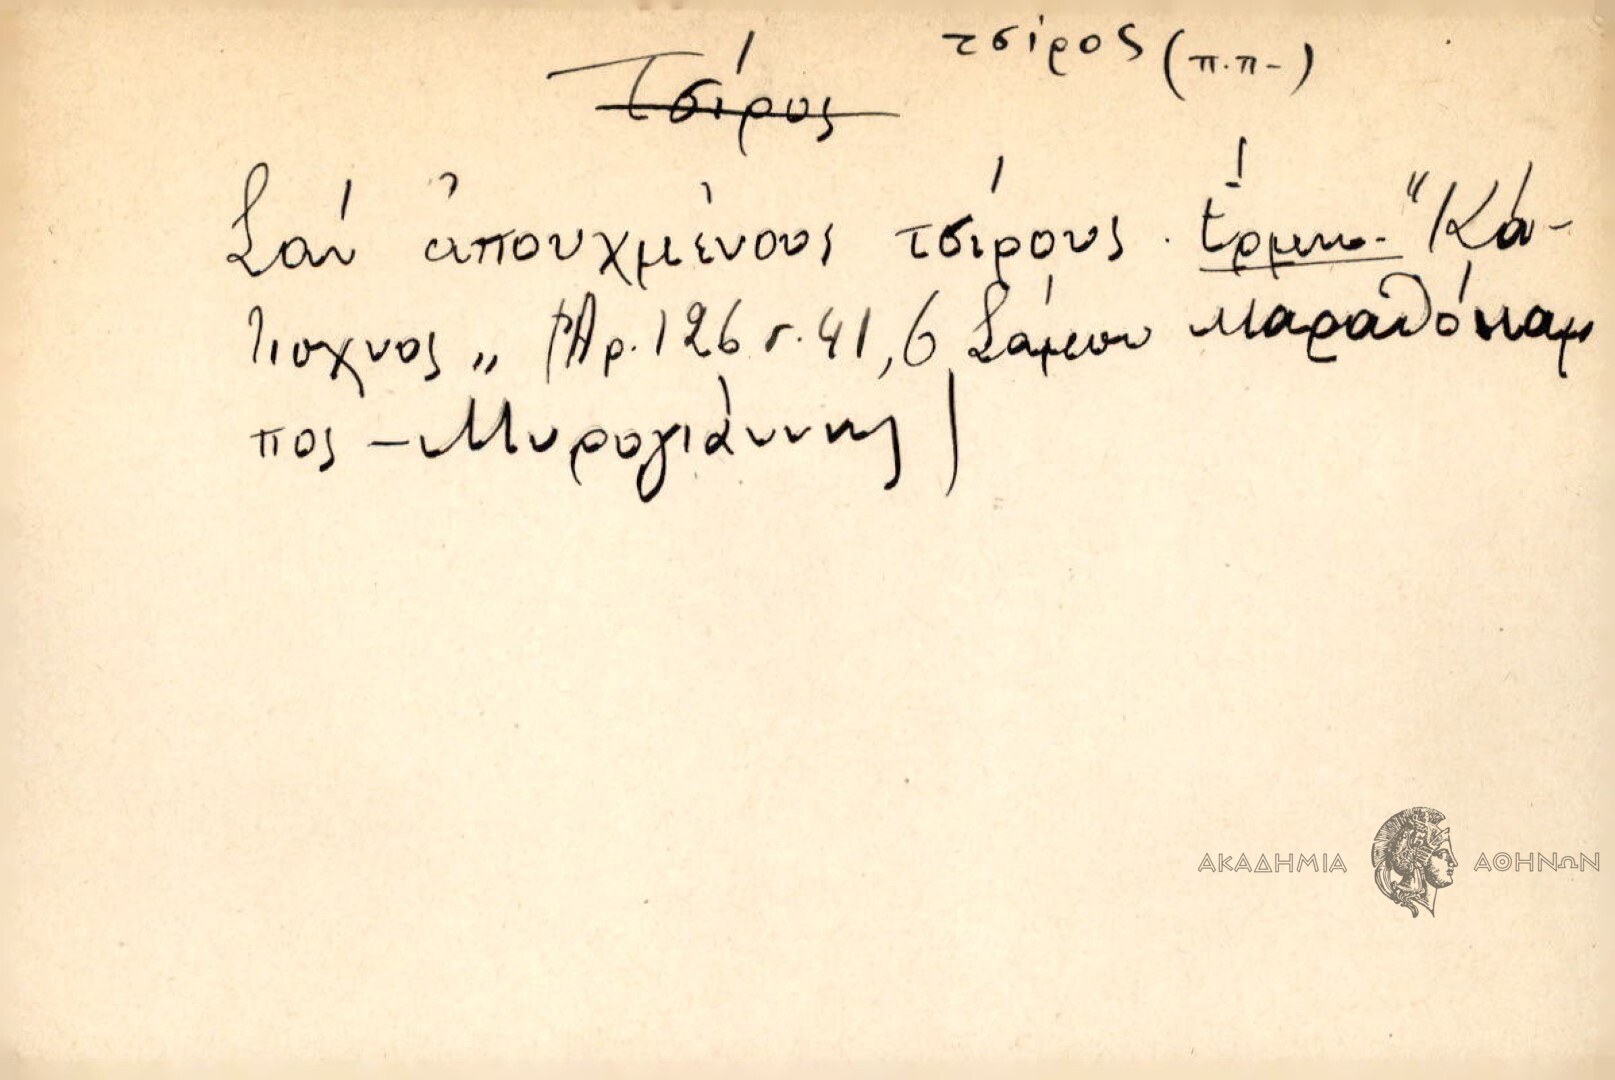 τσίρος (π.π-)
Τσίρος
Σαν ἀπουχμένους τσίρους. ἑρμην. "Κά-
τισχνος" (Ἀρ. 126 σ. 41, 6 Σάμου Μαραθόκαμ
πος - Μυρογιάννης)
ΑΚΑΔΗΜΙΑ ΑΘΗΝΩΝ